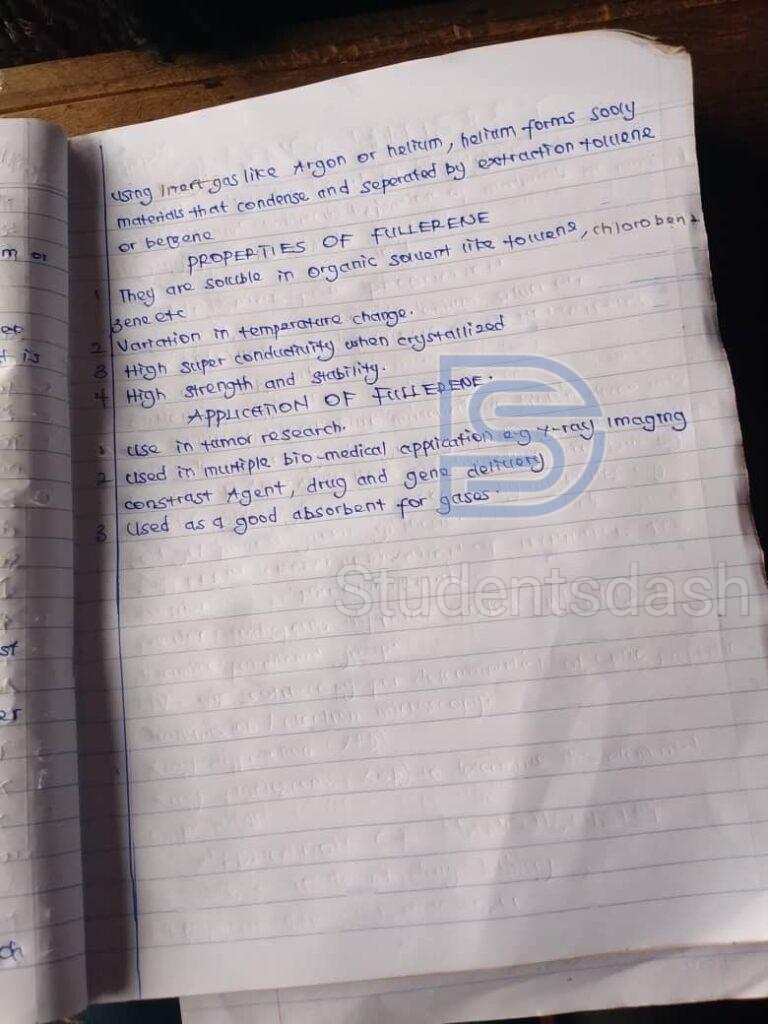 using inert gas like Argon or helium, helium forms sooly
materials that condense and seperated by extraction toluene
or bezene
PROPERTIES OF FULLERENE
1 They are soluble in organic solvent like toluene, chloroben
zene etc
2 Variation in temperature change.
3 High super conductivity when crystallized
4 High strength and stability.
APPLICATION OF FULLERENE.
1 Use in tumor research.
2 Used in multiple bio-medical application e.g x-ray imaging
constrast Agent, drug and gene delivery
3 Used as a good absorbent for gases.
Studentsdash
m or
t is
st
er